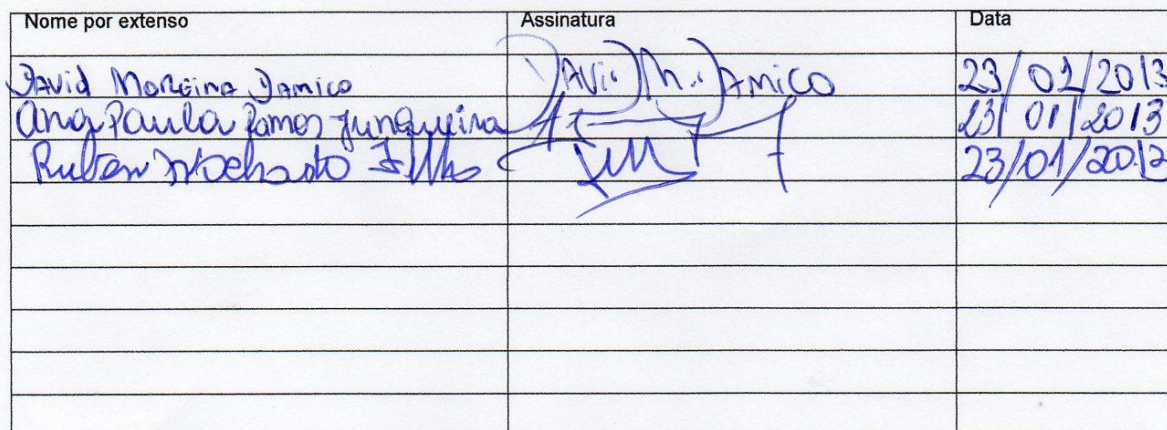 Nome por extenso Assinatura Data
David Moreira Damico David M. Damico 23/01/2013
Ana Paula Ramos Junqueira 23/01/2013
Ruben Machado Filho 23/01/2013